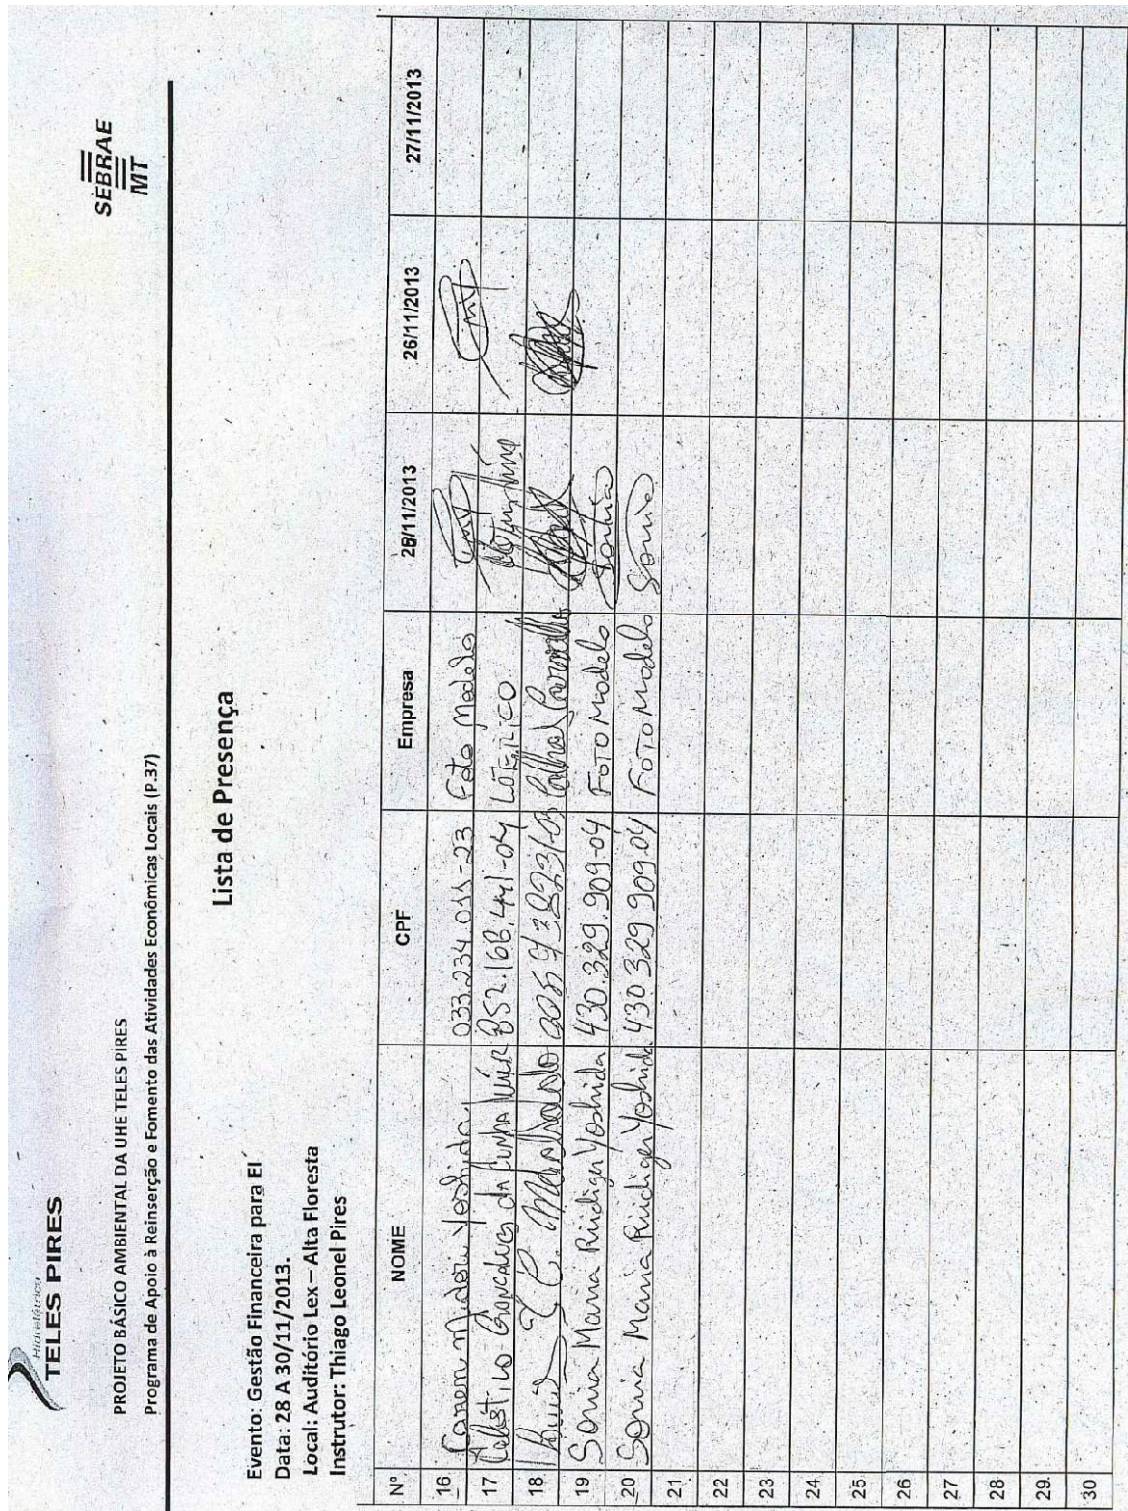 Hidrelétrica
TELES PIRES
SEBRAE
MT
PROJETO BÁSICO AMBIENTAL DA UHE TELES PIRES
Programa de Apoio à Reinserção e Fomento das Atividades Econômicas Locais (P.37)
Lista de Presença
Evento: Gestão Financeira para EI
Data: 28 A 30/11/2013.
Local: Auditório Lex – Alta Floresta
Instrutor: Thiago Leonel Pires
Nº NOME CPF Empresa 28/11/2013 26/11/2013 27/11/2013
16 Midori Yoshida 033.234.011-23 Foto Modelo
17 Gonçalves da Cunha 852.168.441-04 LOTÉRICO
18 Machado
19 Sonia Maria Rüdiger Yoshida 430.329.909-04 FOTO Modelo Sonia
20 Sonia Maria Rüdiger Yoshida 430 329 909.04 FOTO Modelo Sonia
21
22
23
24
25
26
27
28
29.
30